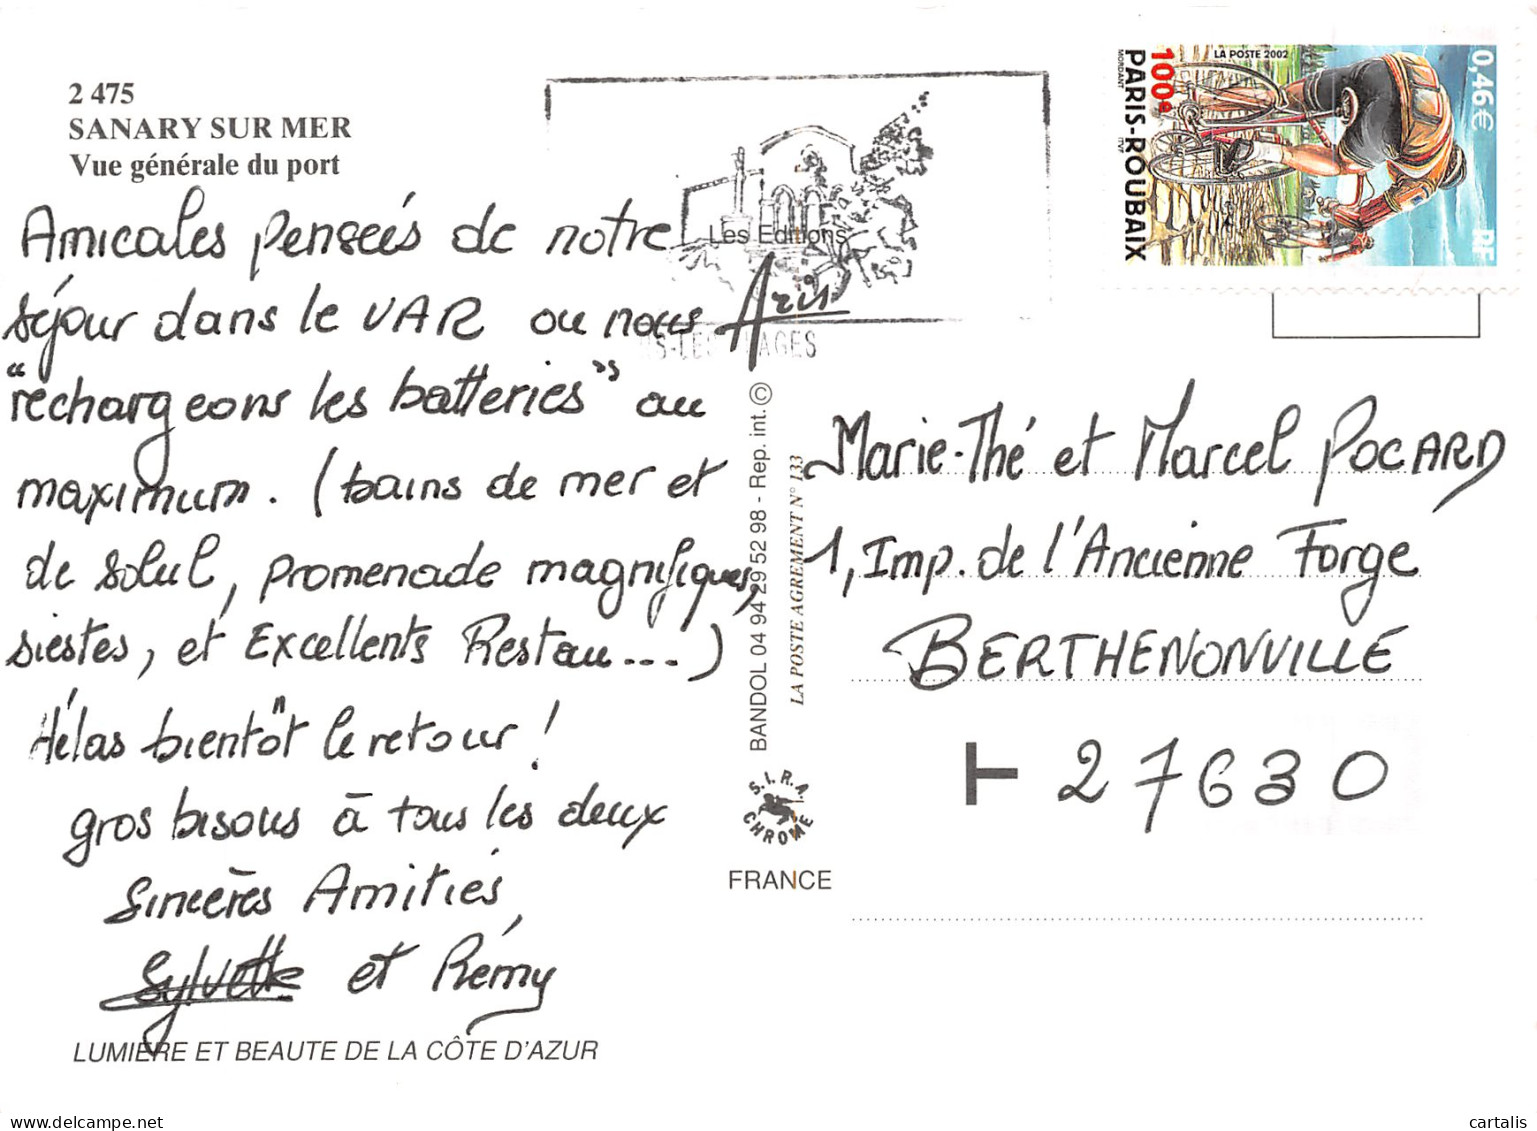 2 475
SANARY SUR MER
Vue générale du port
Amicales penseés de notre
séjour dans le VAR ou nous
"rechargeons les batteries" au
maximum. (bains de mer et
de soleil, promenade magnifiques,
siestes, et Excellents Restau...)
Hélas bientôt le retour!
gros bisous à tous les deux
Sincères Amitiés
Sylvette et Rémy
LUMIERE ET BEAUTE DE LA CÔTE D'AZUR
Les Editions
Aris
BANDOL 04 94 29 52 98 - Rep. int. ©
LA POSTE AGREMENT N° 133
S.I.R.A.
CHROME
FRANCE
0,46€
RF
LA POSTE 2002
100e
PARIS-ROUBAIX
MORDANT
ITVF
Marie-Thé et Marcel POCARD
1, Imp. de l'Ancienne Forge
BERTHENONVILLE
T 27630
cartalis